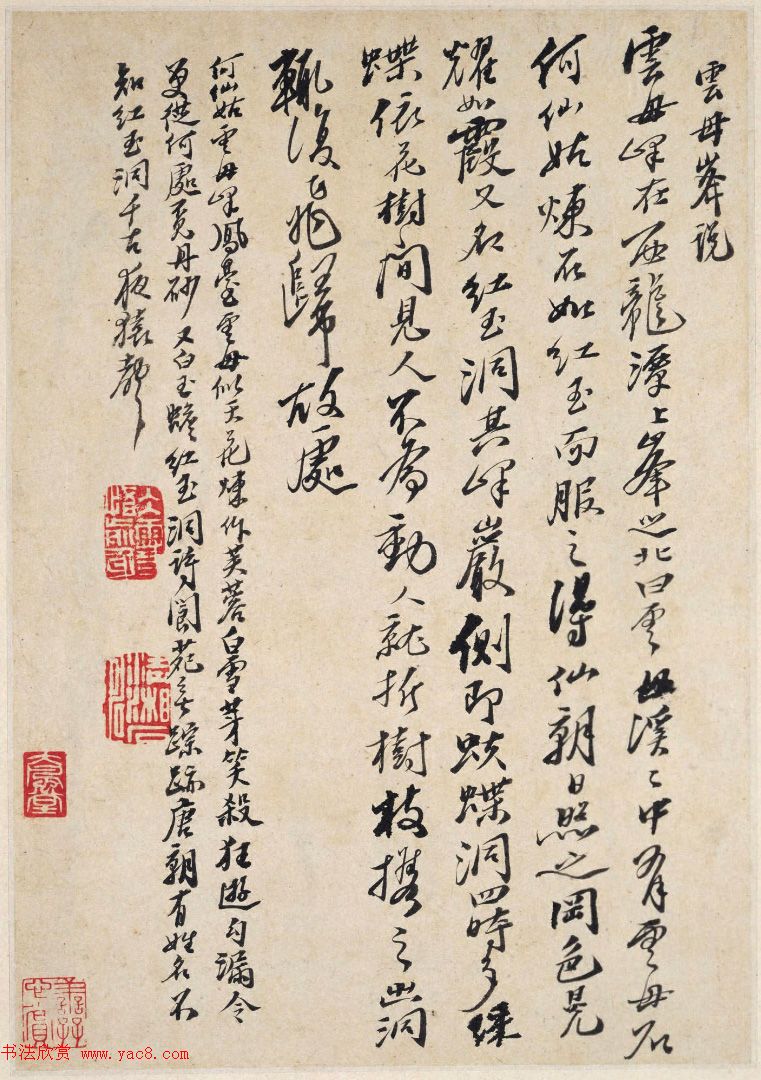 雲母峯説
雲母峰在西龍潭上峯之北曰雲母溪〻中有雲母石
何仙姑煉石如紅玉而服之得仙朝日照之岡色晃
耀如霞又名紅玉洞其峰巖側即蛺蝶洞四時多綵
蝶依花樹間見人不為動人就折樹枝攜之出洞
輒復飛歸故處
何仙姑雲母峰鳳臺雲母似天花煉作芙蓉白雪芽笑殺狂遊勾漏令
更從何處覓丹砂 又白玉蟾紅玉洞詩閬苑無踪跡唐朝有姓名不
知紅玉洞千古夜猿聲
大滌堂
书法欣赏 www.yac8.com